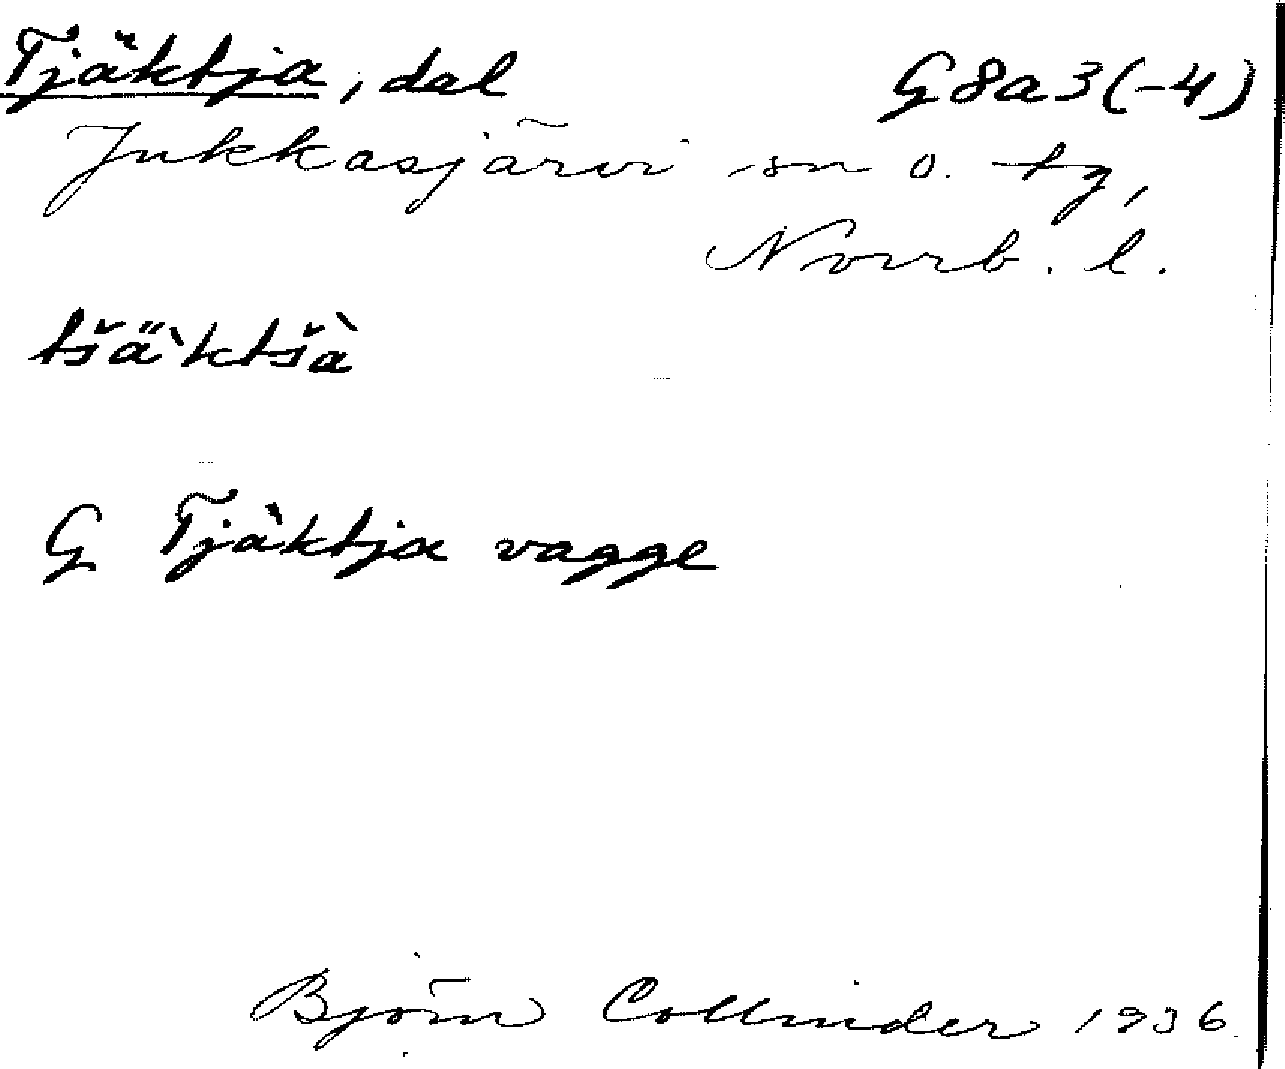 Tjäktja, dal G8a3(-4)
Jukkasjärvi sn o. tg,
Norrb. l.
tšäˋktšà
G Tjäktja vagge
Björn Collinder 1936